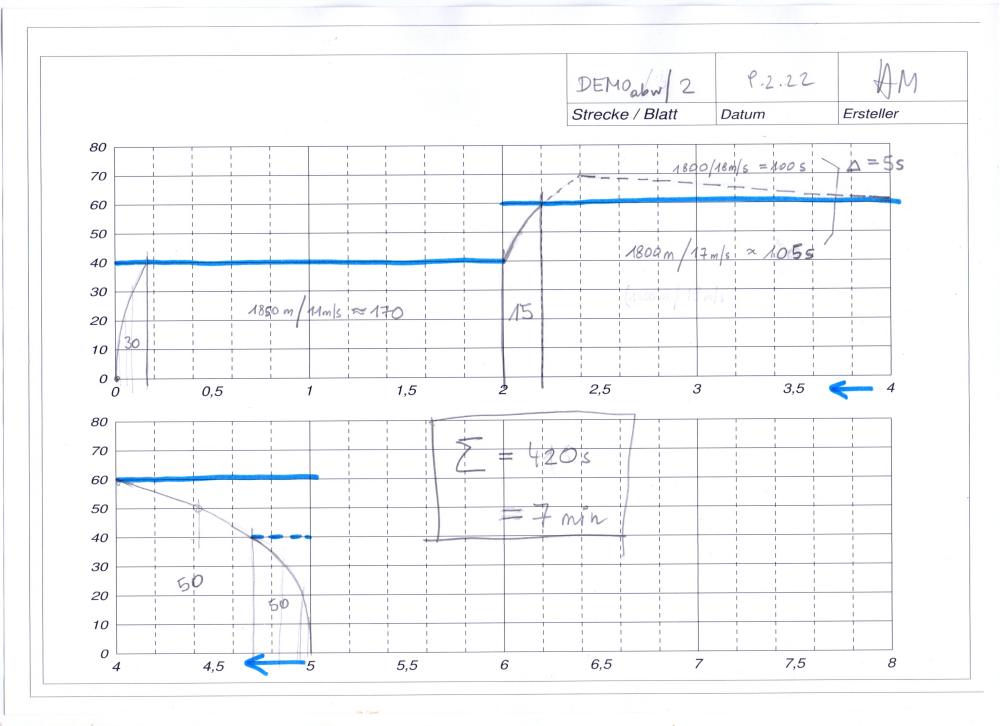 DEMO abw / 2
9.2.22
AM
Strecke / Blatt
Datum
Ersteller
80
70
60
50
40
30
20
10
0
1800/18m/s = 100 s
Δ = 5s
1800m/17m/s ≈ 105s
1850 m/11m/s ≈ 170
30
15
0
0,5
1
1,5
2
2,5
3
3,5
4
80
70
60
50
40
30
20
10
0
Σ = 420s
= 7 min
50
50
4
4,5
5
5,5
6
6,5
7
7,5
8